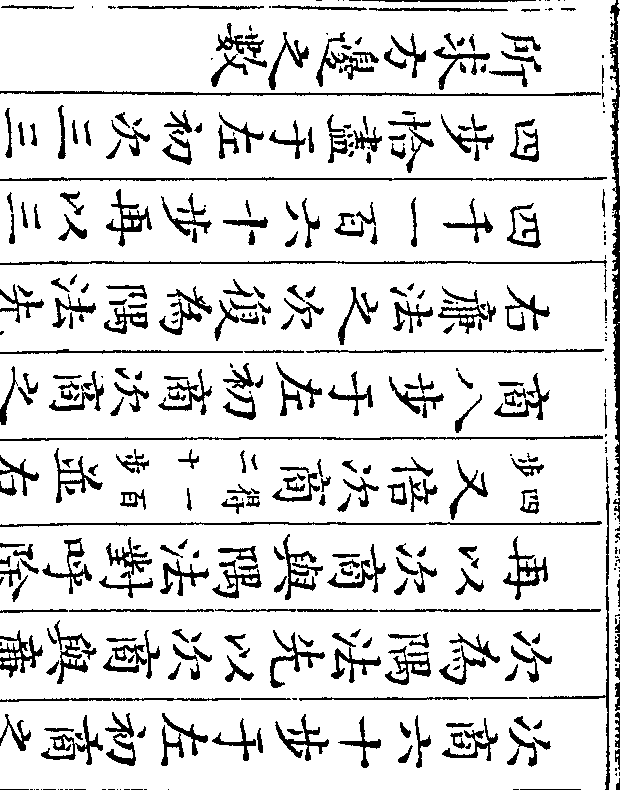 次商六十步于左初商之
次為隅法先以次商與廉
再以次商與隅法對呼除
四步又倍次商得一百二十步並右
商八步于左初商次商之
右廉法之次復為隅法先
四千一百六十步再以三
四步恰盡于左初次三三
所求方邊之數